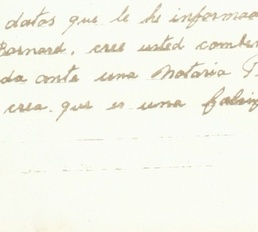 datos que le he informa
Barnard, cree usted conve
da ante una Notaria P
crea que es una fals